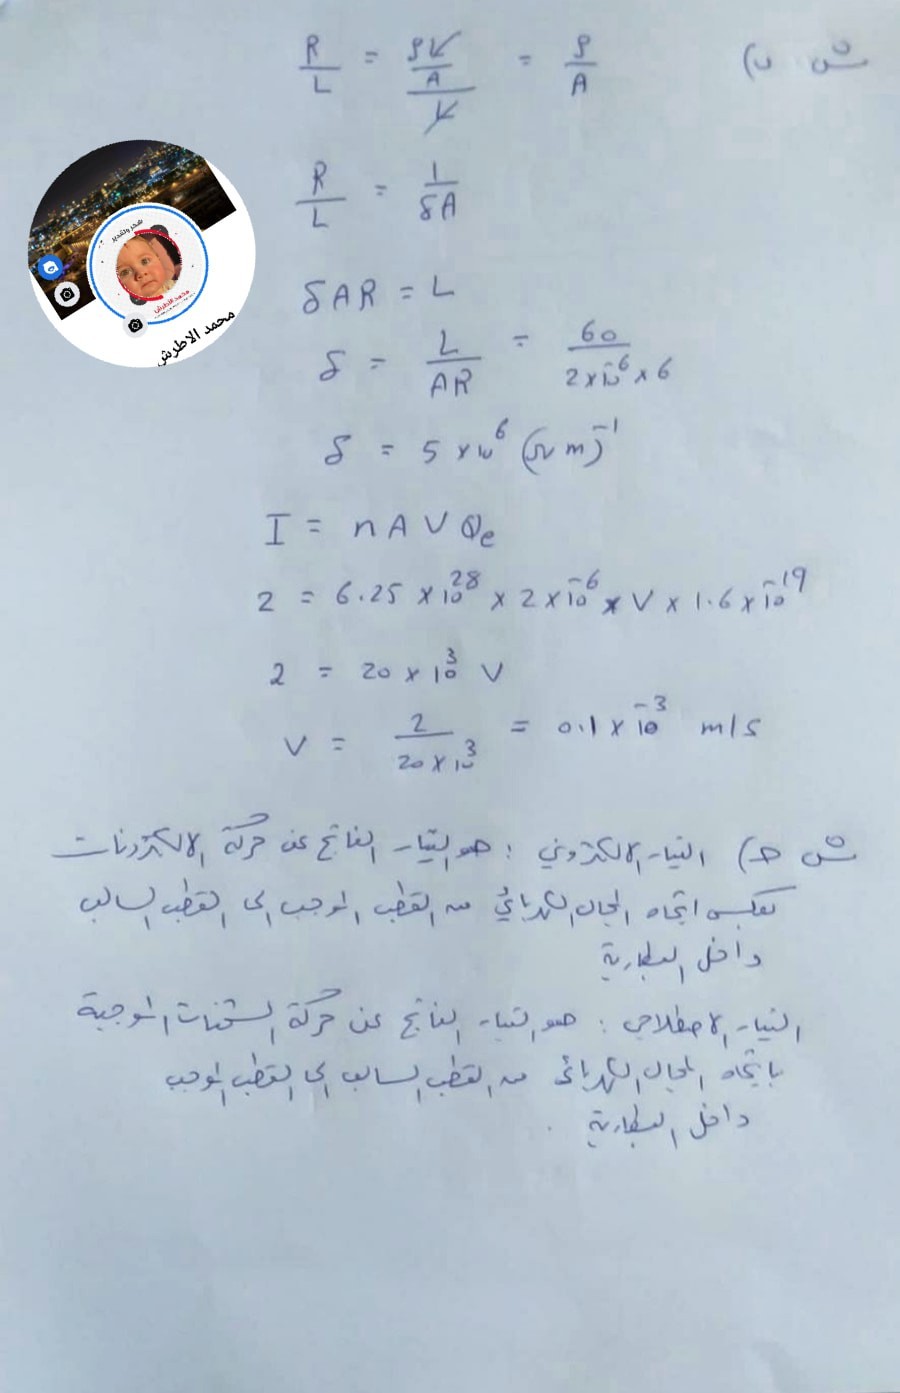 ش ب)
R/L = ρL/A / L = ρ/A
R/L = 1/δA
δAR = L
δ = L/AR = 60/2×10⁻⁶×6
δ = 5×10⁶ (Ω m)⁻¹
I = n A V Qe
2 = 6.25 × 10²⁸ × 2×10⁻⁶ × V × 1.6×10⁻¹⁹
2 = 20 × 10³ V
V = 2/20×10³ = 0.1×10⁻³ m/s
ش جـ) التيار الالكتروني : هو التيار الناتج عن حركة الالكترونات
بعكس اتجاه المجال الكهربائي من القطب الموجب الى القطب السالب
داخل البطارية
التيار الاصطلاحي : هو التيار الناتج عن حركة الشحنات الموجبة
باتجاه المجال الكهربائي من القطب السالب الى القطب الموجب
داخل البطارية .
محمد الاطرش